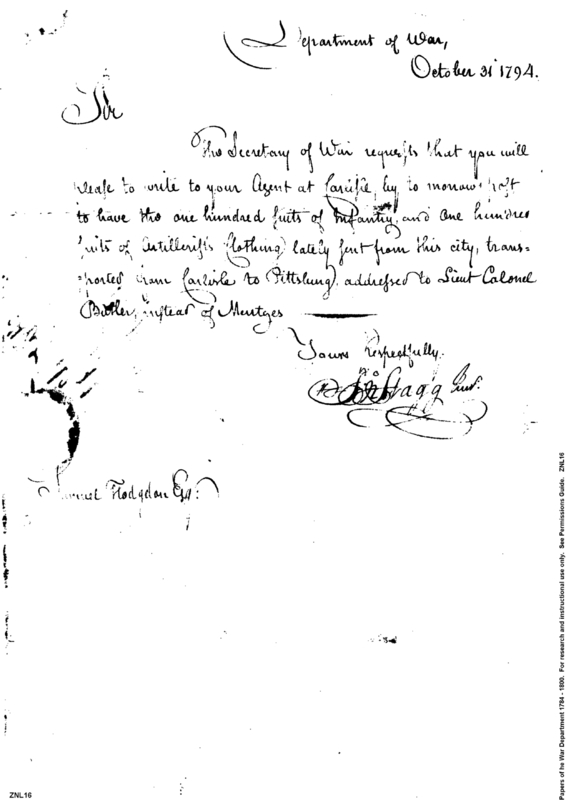 Department of War,
October 31 1794.
Sir
The Secretary of War requests that you will
please to write to your Agent at Carlisle, by to morrows post
to have the one hundred suits of Infantry, and one hundred
suits of Artillerists Clothing, lately sent from this city, trans=
ported from Carlisle to Pittsburg, addressed to Lieut Colonel
Butler, instead of Mentges
Yours Respectfully.
Jno Stagg Junr.
Samuel Hodgdon Esq:
Papers of he War Department 1784 - 1800. For research and instructional use only. See Permissions Guide. ZNL16
ZNL16